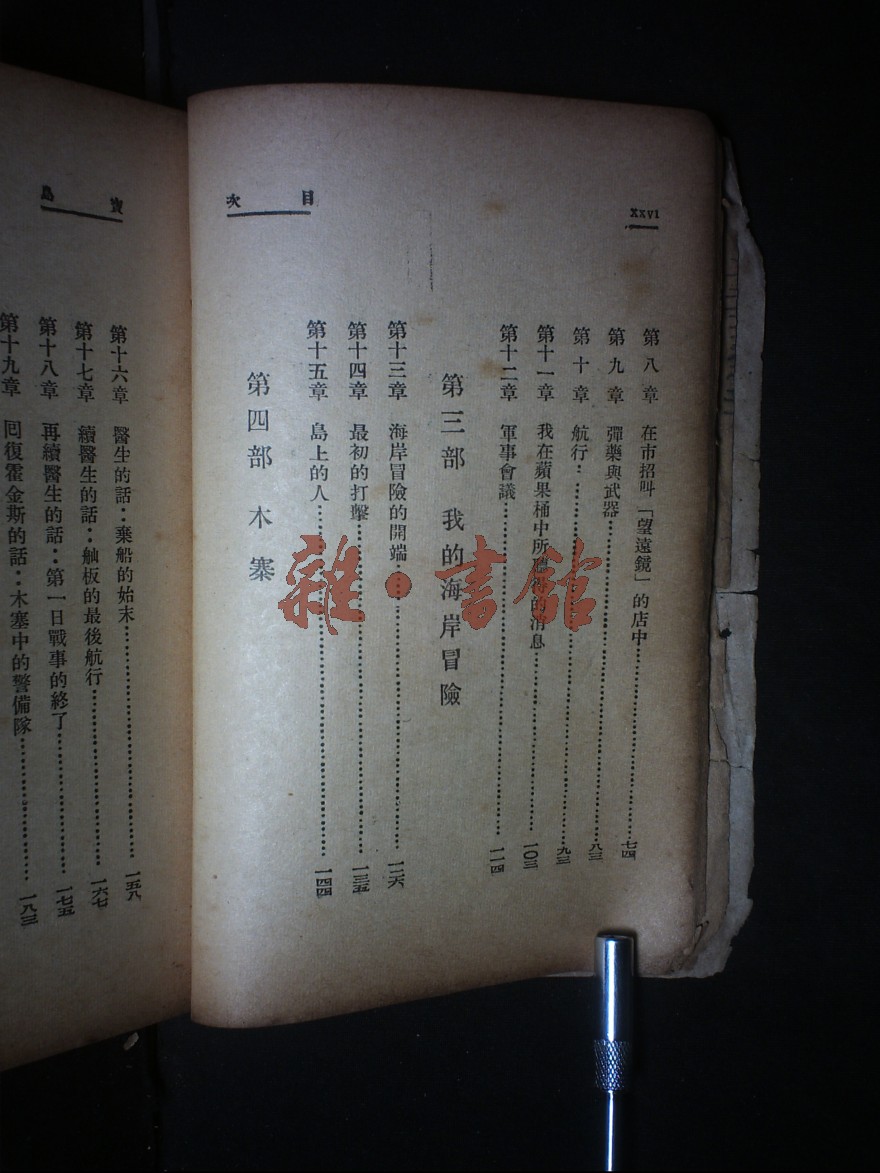 xxvi
目次
第八章 在市招叫「望遠鏡」的店中……七四
第九章 彈藥與武器……八三
第十章 航行……九三
第十一章 我在蘋果桶中所聽得的消息……一〇三
第十二章 軍事會議……一一四
第三部 我的海岸冒險
第十三章 海岸冒險的開端……一二六
第十四章 最初的打擊……一三五
第十五章 島上的人……一四四
第四部 木寨
寶島
第十六章 醫生的話：棄船的始末……一五八
第十七章 續醫生的話：舢板的最後航行……一六七
第十八章 再續醫生的話：第一日戰事的終了……一七五
第十九章 回復霍金斯的話：木塞中的警備隊……一八三
雜·書館